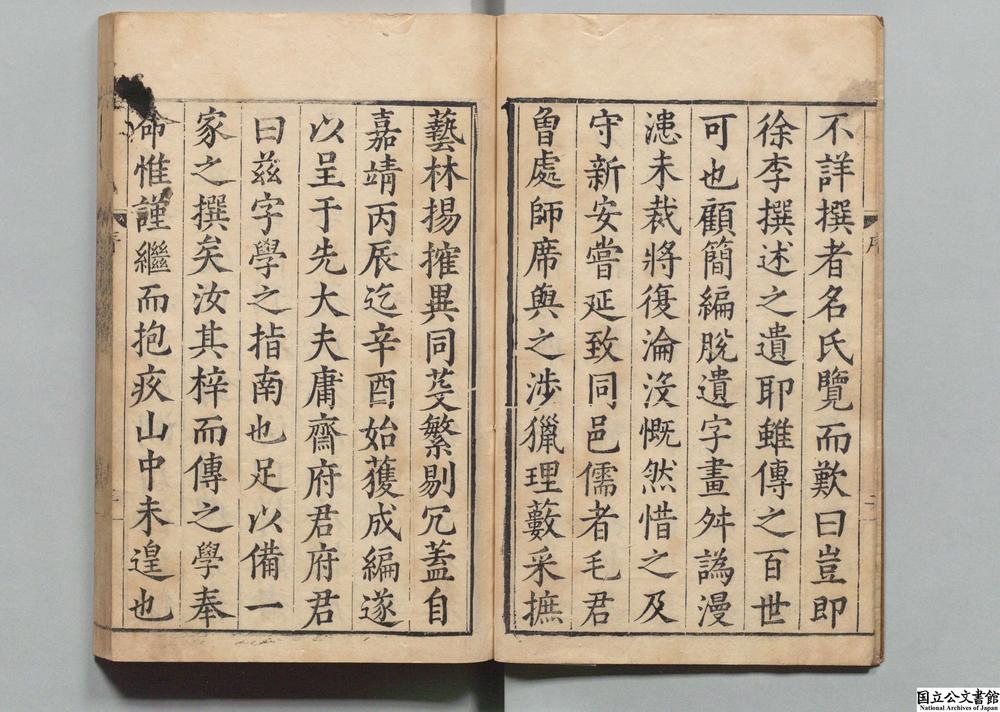 不詳撰者名氏覽而歎曰豈即
徐李撰述之遺耶雖傳之百世
可也顧簡編脫遺字畫舛譌漫
漶未裁將復淪沒慨然惜之及
守新安嘗延致同邑儒者毛君
魯處師席與之涉獵理藪采摭
藝林揚搉異同芟繁剔冗蓋自
嘉靖丙辰迄辛酉始獲成編遂
以呈于先大夫庸齋府君府君
曰茲字學之指南也足以備一
家之撰矣汝其梓而傳之學奉
命惟謹繼而抱疚山中未遑也
序
二
国立公文書館
National Archives of Japan